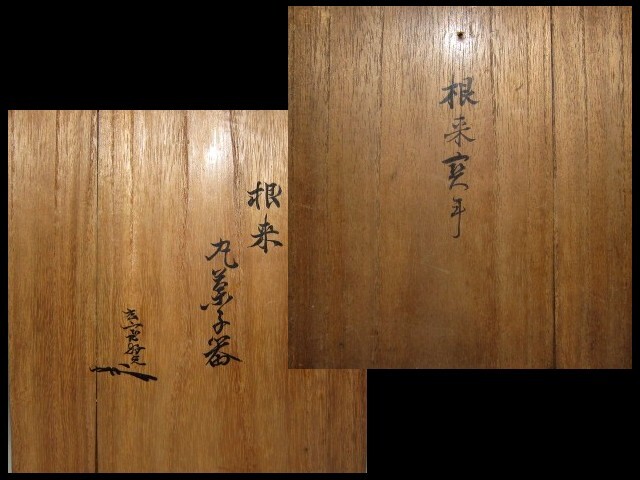 根来
丸菓子器
根来寅年